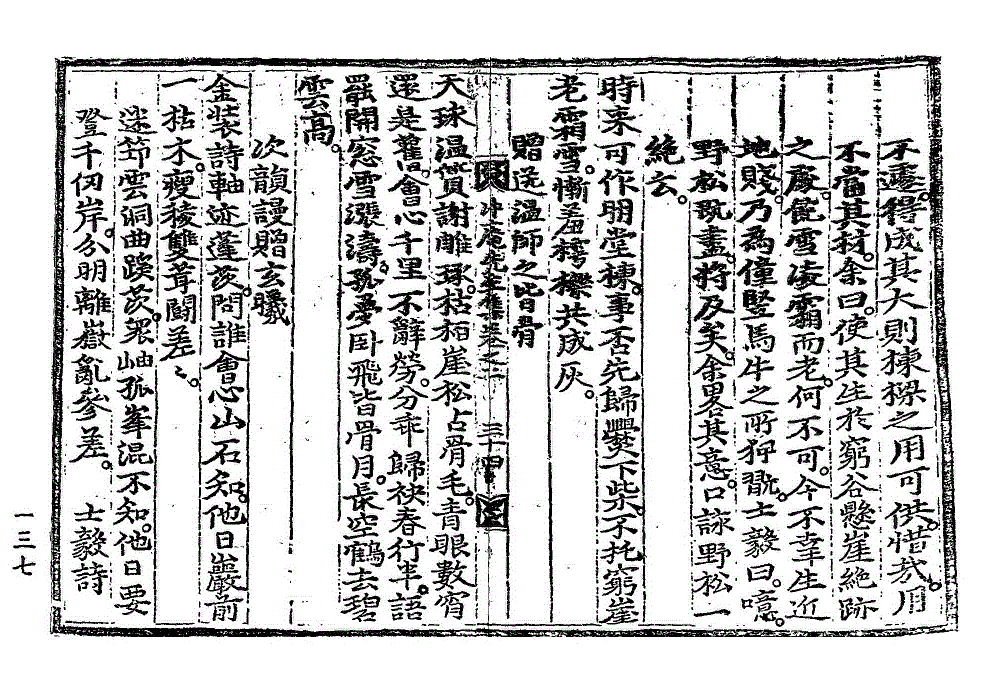 不遷得成其大則棟樑之用可供惜哉用
不當其材余曰使其生於窮谷懸崖絶跡
之處飽雪凌霜而老何不可今不幸生近
地賤乃為僮竪馬牛之所狎翫士毅曰噫
野松旣盡將及矣余畧其意口詠野松一
絶云
時來可作明堂棟事否先歸爨下柴不托窮崖
老霜雪慚羞樗櫟共成灰
贈送温師之皆骨
冲庵先生集卷之二 三十四
天球温質謝雕琢枯栢崖松占骨毛青眼數宵
還是舊會心千里不辭勞分乖歸袂春行半語
罷開窓雪漲濤孤夢卧飛皆骨月長空鶴去碧
雲高
次韻謾贈玄曦
金裝詩軸迹蓬茨問誰會心山石知他日巖前
一枯木瘦稜雙耳闘差差
迷笻雲洞曲蹊茨衆岫孤峯混不知他日要
登千仞岸分明離嶽亂參差 士毅詩
一三七